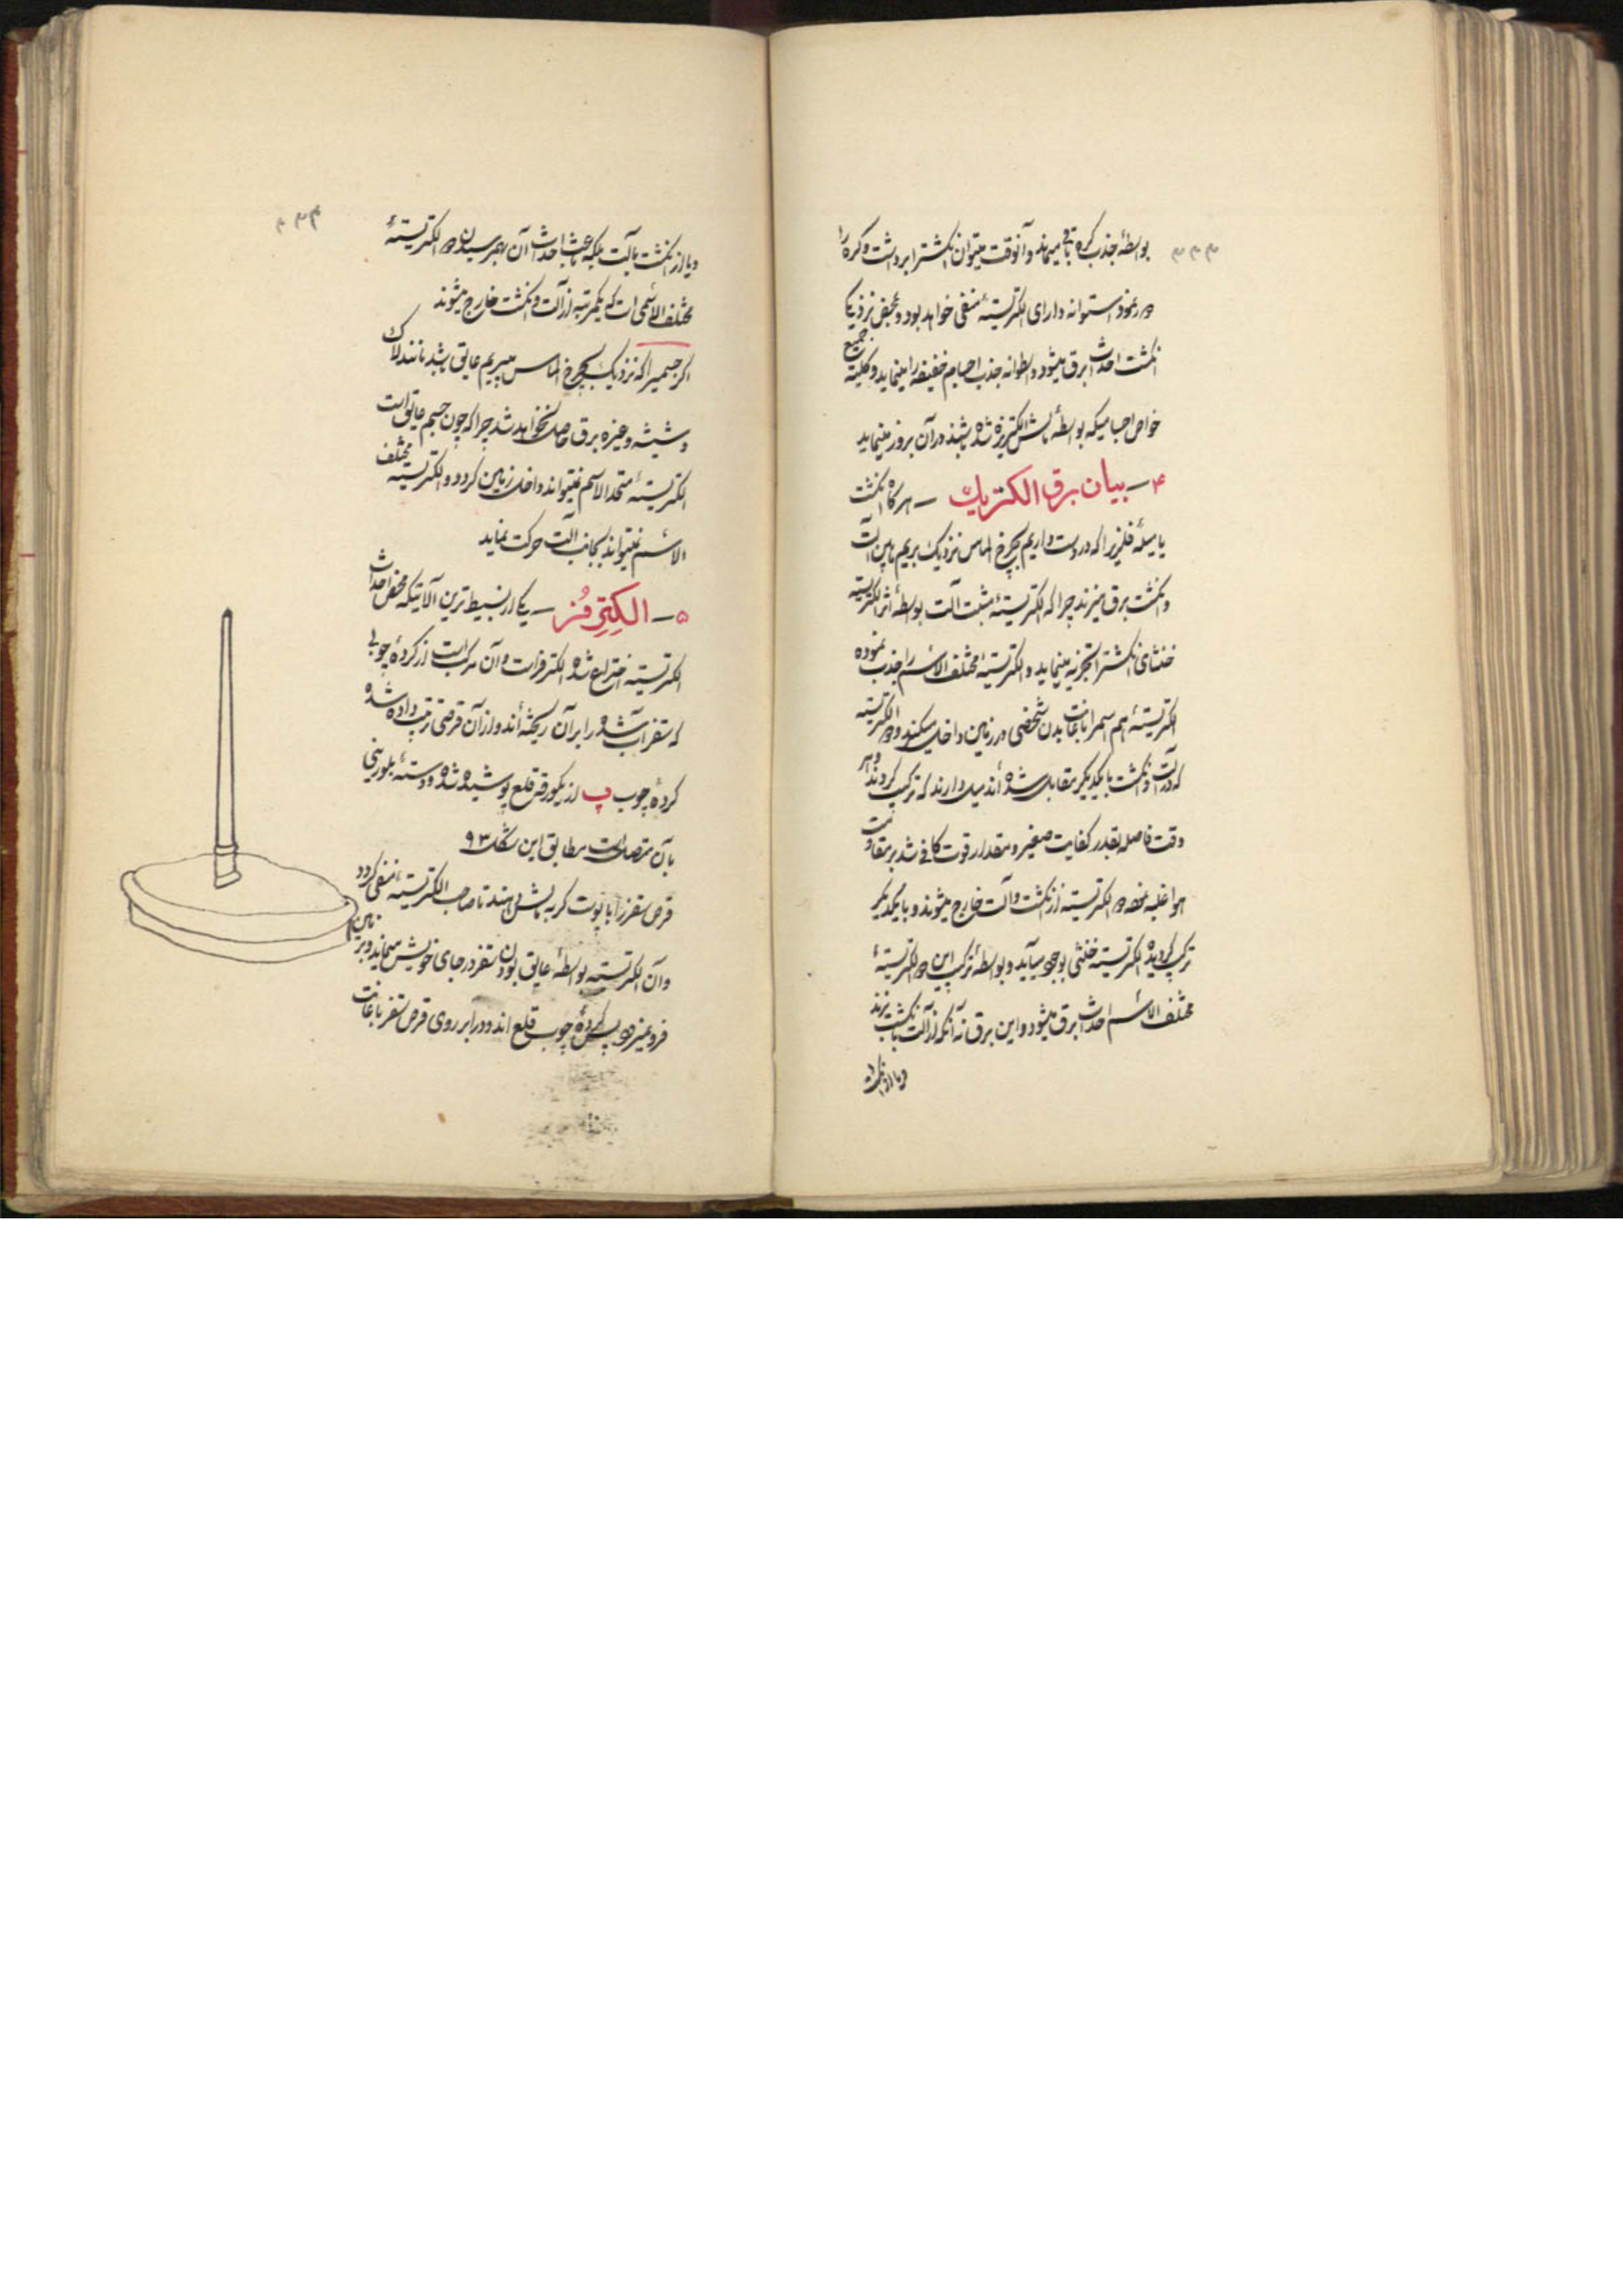 ۳۳۳
بواسطهٔ جذب کره باقی میماند و آنوقت میتوان انگشترا برداشت و کره را
در نمود استوانه دارای الکتریستهٔ منفی خواهد بود و بمحض نزدیکی
انگشت احداث برق میشود و استوانه جذب اجسام خفیفه را مینماید و کلیتهٔ جمیع
خواص اجسامیکه بواسطهٔ مالش الکتریزه شده باشند در آن بروز مینماید
۴ – بیان برق الکتریک – هرگاه انگشت
یا میلهٔ فلزیرا که در دست داریم بچرخ الماس نزدیک بریم مابین آلت
و انگشت برق میزند چرا که الکتریستهٔ مثبت آلت بواسطهٔ اثر الکتریسته
خنثای انگشترا تجزیه مینماید و الکتریستهٔ مختلف الاسم را جذب نموده
الکتریستهٔ هم اسمرا باعانت بدن شخصی در زمین داخل میکند و دو الکتریسته
که در آلت و انگشت با یکدیگر مقابل شده اند میل دارند که ترکیب گردند و هر
وقت فاصله بقدر کفایت صغیر و مقدار قوت کافی شد بر مقاومت
هوا غلبه نموده دو الکتریسته از انگشت و آلت خارج میشوند و با یکدیگر
ترکیب گردیده الکتریستهٔ خنثی بوجود میآید و بواسطهٔ ترکیب این دو الکتریستهٔ
مختلف الاسم احداث برق میشود و این برق نه آنکه از آلت بانگشت بزند
و یا از انگشت
۳۳۴
و یا از انگشت بآلت بلکه باعث احداث آن بهم رسیدن دو الکتریستهٔ
مختلف الاسمی است که یکمرتبه از آلت و انگشت خارج میشوند
اگر جسمیرا که نزدیک بچرخ الماس میبریم عایق باشد مانند لاک
و شیشه و غیره برق حاصل نخواهد شد چرا که چون جسم عایق است
الکتریستهٔ متحد الاسم نمیتواند داخل زمین گردد و الکتریستهٔ مختلف
الاسم نمیتواند بجانب آلت حرکت نماید
۵ – الکتِرِفُر – یکی از بسیط ترین آلاتیکه محض احداث
الکتریسته اختراع شده الکترفر است و آن مرکب است از گردهٔ چوبی
که سقز آب شده را بر آن ریخته اند و از آن قرصی ترتیب داده شده
گردهٔ چوب پ از یکورقه قلع پوشیده شده و دستهٔ بلورینی
بآن متصل است مطابق این شکل ۹۳
قرص سقز را با پوست گربه مالش دهند تا صاحب الکتریستهٔ منفی گردد
و آن الکتریسته بواسطهٔ عایق بودن سقز در جای خویش میماند و بزمین
فرو نمیرود پس گردهٔ چوب قلع اندود را بر روی قرص سقز باعانت